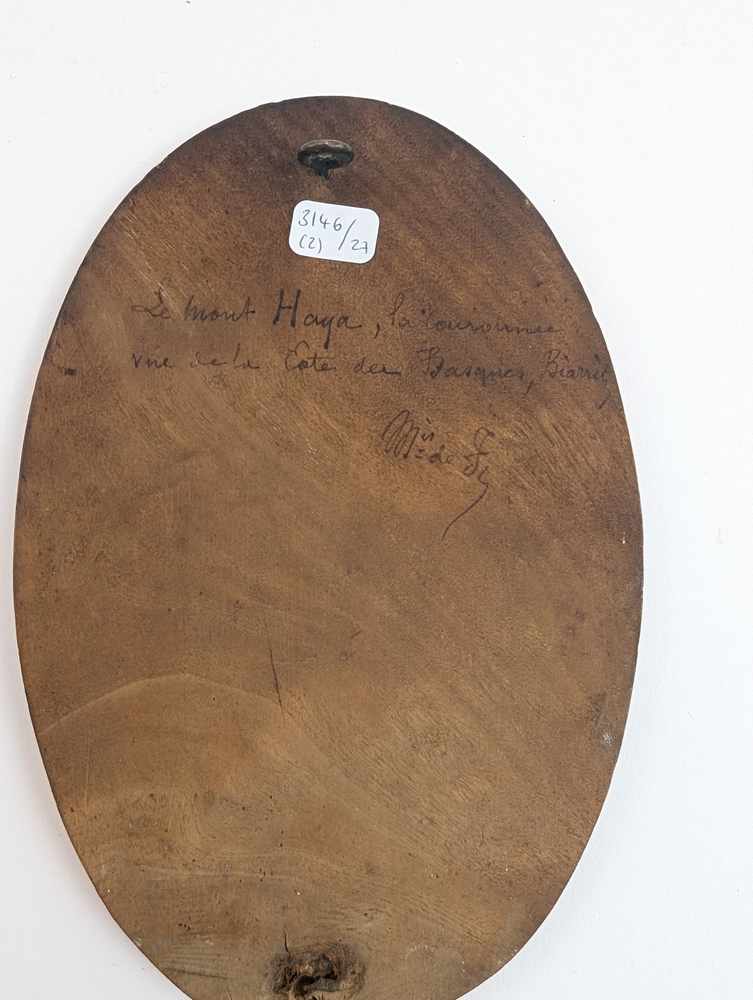 3146/27
(2)
Le mont Haya, la couronnée
vue de la Côte des Basques, Biarritz
Mis de F